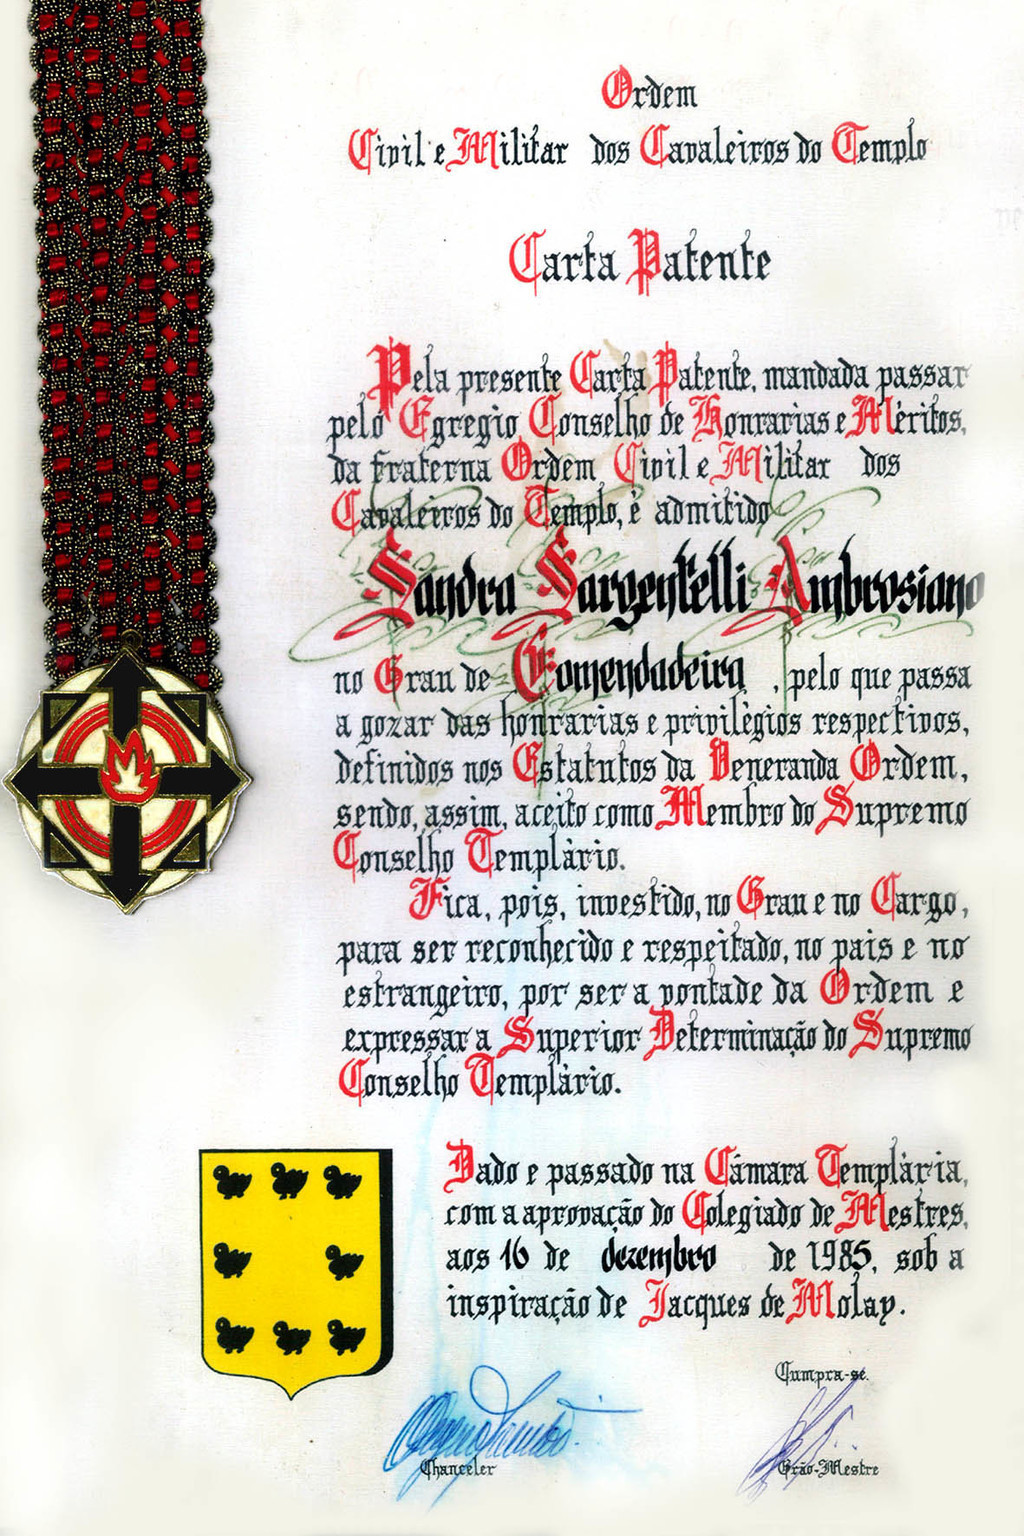 Ordem
Civil e Militar dos Cavaleiros do Templo
Carta Patente
Pela presente Carta Patente, mandada passar
pelo Egregio Conselho de Honrarias e Méritos,
da fraterna Ordem Civil e Militar dos
Cavaleiros do Templo, é admitido
Sandra Sargentelli Ambrosiano
no Grau de Comendadeira, pelo que passa
a gozar das honrarias e privilègios respectivos,
definidos nos Estatutos da Veneranda Ordem,
sendo, assim, aceito como Membro do Supremo
Conselho Templàrio.
Fica, pois, investido, no Grau e no Cargo,
para ser reconhecido e respeitado, no pais e no
estrangeiro, por ser a vontade da Ordem e
expressar a Superior Determinação do Supremo
Conselho Templàrio.
Dado e passado na Câmara Templària,
com a aprovação do Colegiado de Mestres,
aos 16 de dezembro de 1985, sob a
inspiração de Jacques de Molay.
Cumpra-se.
Chanceler
Grão-Mestre